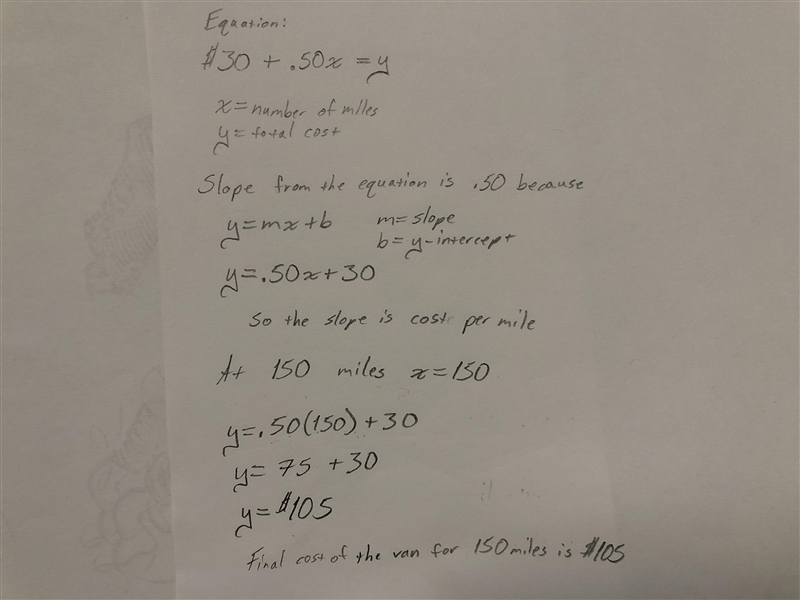 Equation:
$30 + .50x = y
x = number of miles
y = total cost
Slope from the equation is .50 because
y = mx + b m = slope
b = y-intercept
y = .50x + 30
So the slope is cost per mile
At 150 miles x = 150
y = .50(150) + 30
y = 75 + 30
y = $105
Final cost of the van for 150 miles is $105